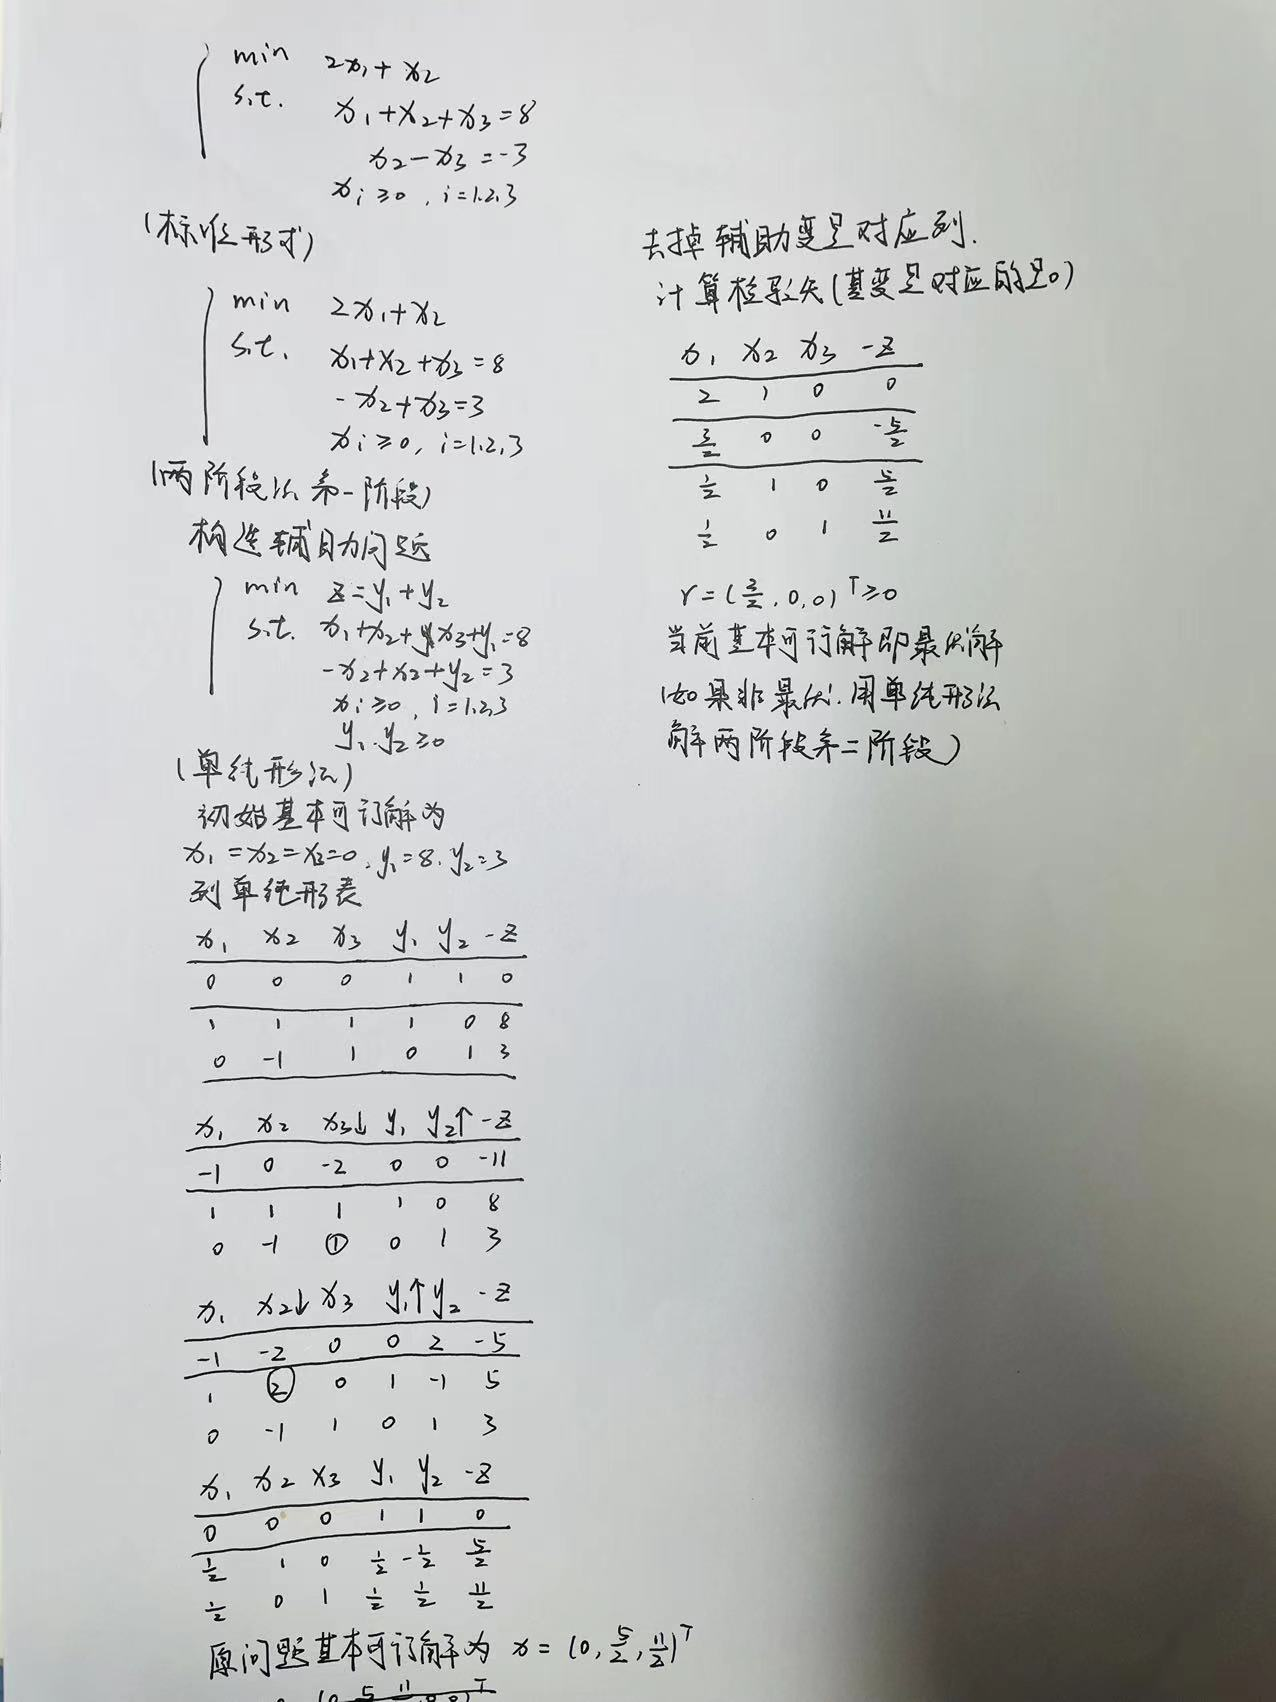 min 2x₁+x₂
s.t. x₁+x₂+x₃=8
x₂-x₃=-3
xᵢ≥0, i=1.2.3
(标准形式)
min 2x₁+x₂
s.t. x₁+x₂+x₃=8
-x₂+x₃=3
xᵢ≥0, i=1.2.3
(两阶段法第一阶段)
构造辅助问题
min z=y₁+y₂
s.t. x₁+x₂+x₃+y₁=8
-x₂+x₂+y₂=3
xᵢ≥0, i=1.2.3
y₁.y₂≥0
(单纯形法)
初始基本可行解为
x₁=x₂=x₃=0, y₁=8. y₂=3
列单纯形表
x₁ x₂ x₃ y₁ y₂ -z
0 0 0 1 1 0
1 1 1 1 0 8
0 -1 1 0 1 3
x₁ x₂ x₃↓ y₁ y₂↑ -z
-1 0 -2 0 0 -11
1 1 1 1 0 8
0 -1 ① 0 1 3
x₁ x₂↓ x₃ y₁↑ y₂ -z
-1 -2 0 0 2 -5
1 ② 0 1 -1 5
0 -1 1 0 1 3
x₁ x₂ x₃ y₁ y₂ -z
0 0 0 1 1 0
1/2 1 0 1/2 -1/2 5/2
1/2 0 1 1/2 1/2 11/2
原问题基本可行解为 x=(0, 5/2, 11/2)ᵀ
去掉辅助变量对应列.
计算检验数(基变量对应的是0)
x₁ x₂ x₃ -z
2 1 0 0
3/2 0 0 -5/2
1/2 1 0 5/2
1/2 0 1 11/2
r=(3/2, 0, 0)ᵀ≥0
当前基本可行解即最优解
(如果非最优. 用单纯形法
解两阶段第二阶段)